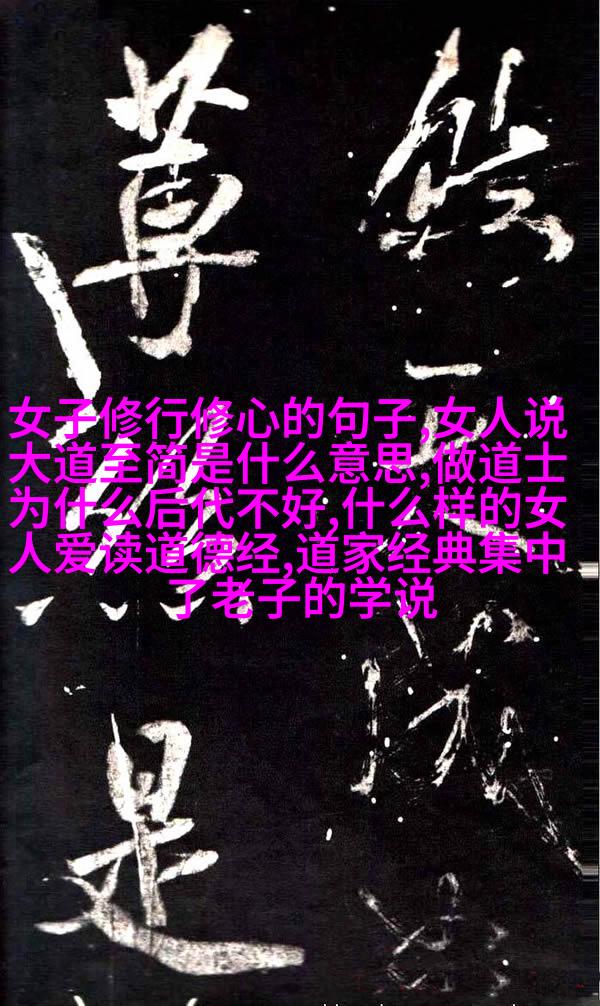 女子修行修心的句子,女人说
大道至简是什么意思,做道士
为什么后代不好,什么样的女
人爱读道德经,道家经典集中
了老子的学说
草
是